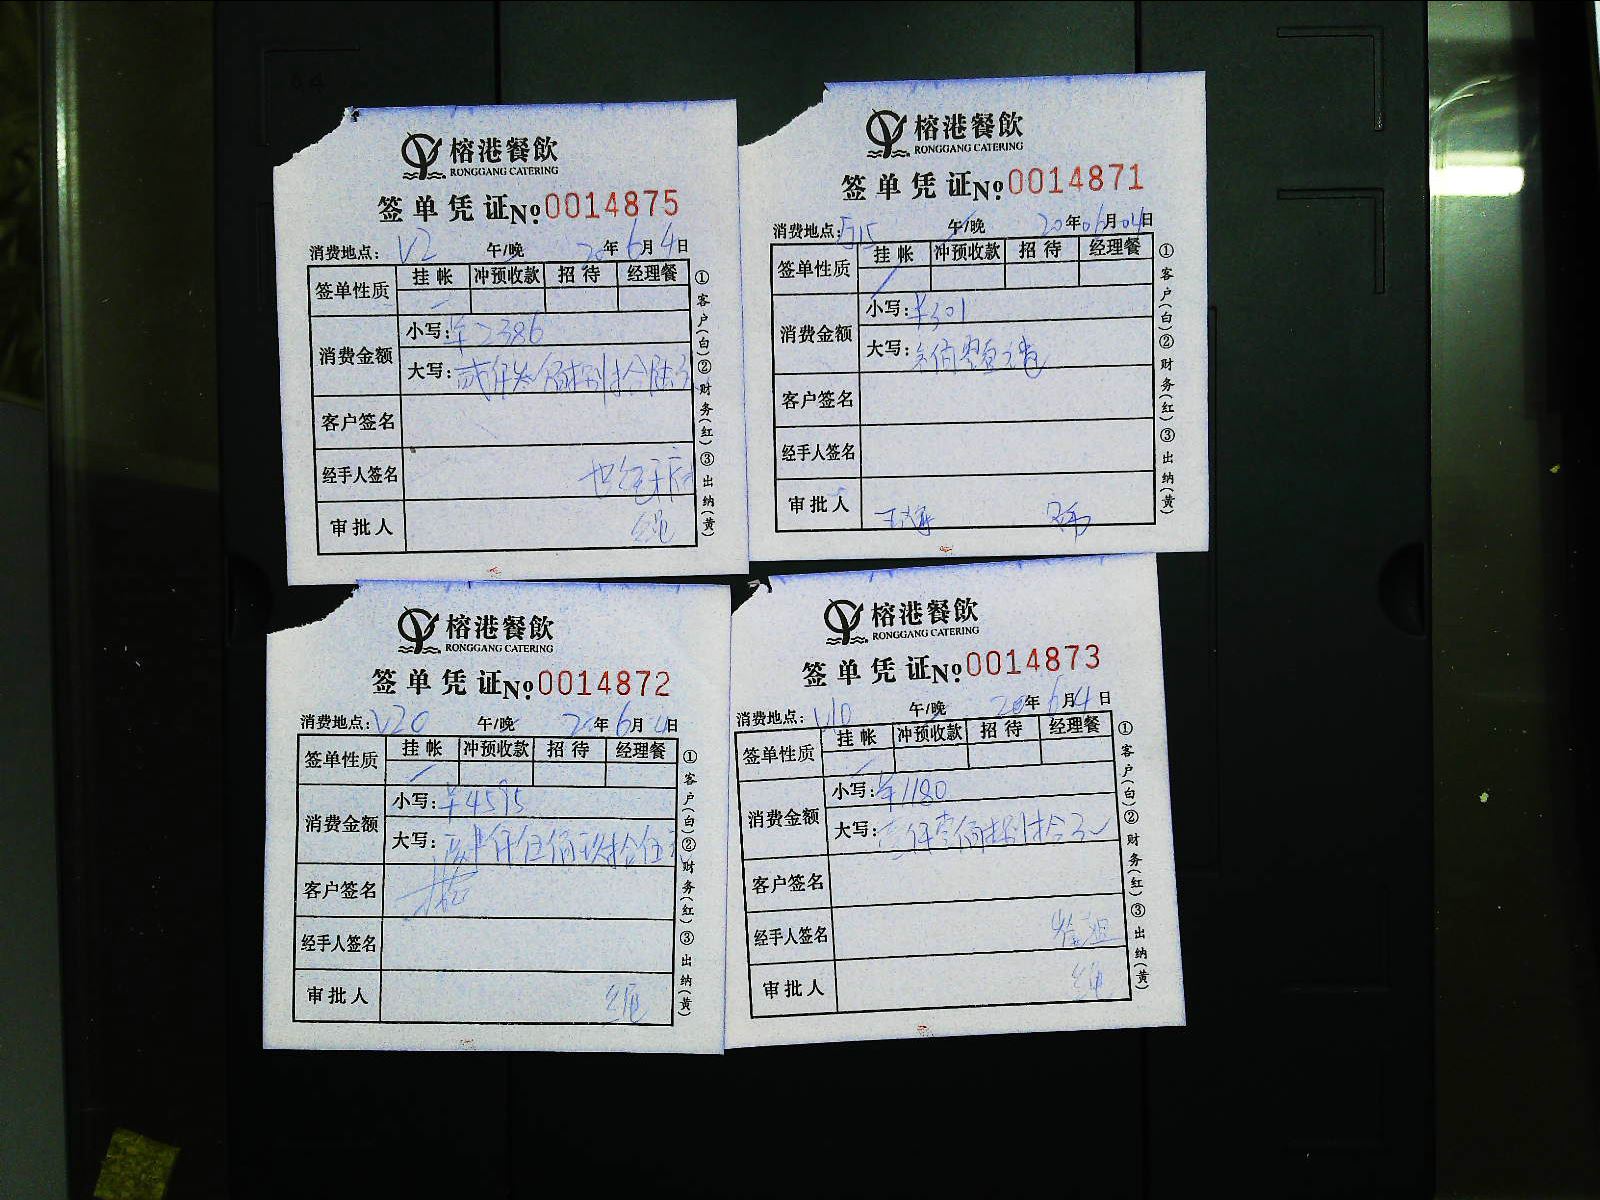 榕港餐飲
RONGGANG CATERING
签单凭证 №0014875
消费地点: V2 午/晚 20年6月4日
签单性质 挂帐 冲预收款 招待 经理餐
消费金额
小写: ¥2386
大写: 贰仟叁佰捌拾陆元
客户签名
经手人签名
审批人
①客户(白)②财务(红)③出纳(黄)
榕港餐飲
RONGGANG CATERING
签单凭证 №0014871
消费地点: 午/晚 20年06月04日
签单性质 挂帐 冲预收款 招待 经理餐
消费金额
小写: ¥301
大写:
客户签名
经手人签名
审批人
①客户(白)②财务(红)③出纳(黄)
榕港餐飲
RONGGANG CATERING
签单凭证 №0014872
消费地点: V20 午/晚 20年6月4日
签单性质 挂帐 冲预收款 招待 经理餐
消费金额
小写: ¥4595
大写: 仟伍佰玖拾伍元
客户签名
经手人签名
审批人
①客户(白)②财务(红)③出纳(黄)
榕港餐飲
RONGGANG CATERING
签单凭证 №0014873
消费地点: V10 午/晚 20年6月4日
签单性质 挂帐 冲预收款 招待 经理餐
消费金额
小写: ¥1180
大写: 壹仟壹佰捌拾元
客户签名
经手人签名
审批人
①客户(白)②财务(红)③出纳(黄)